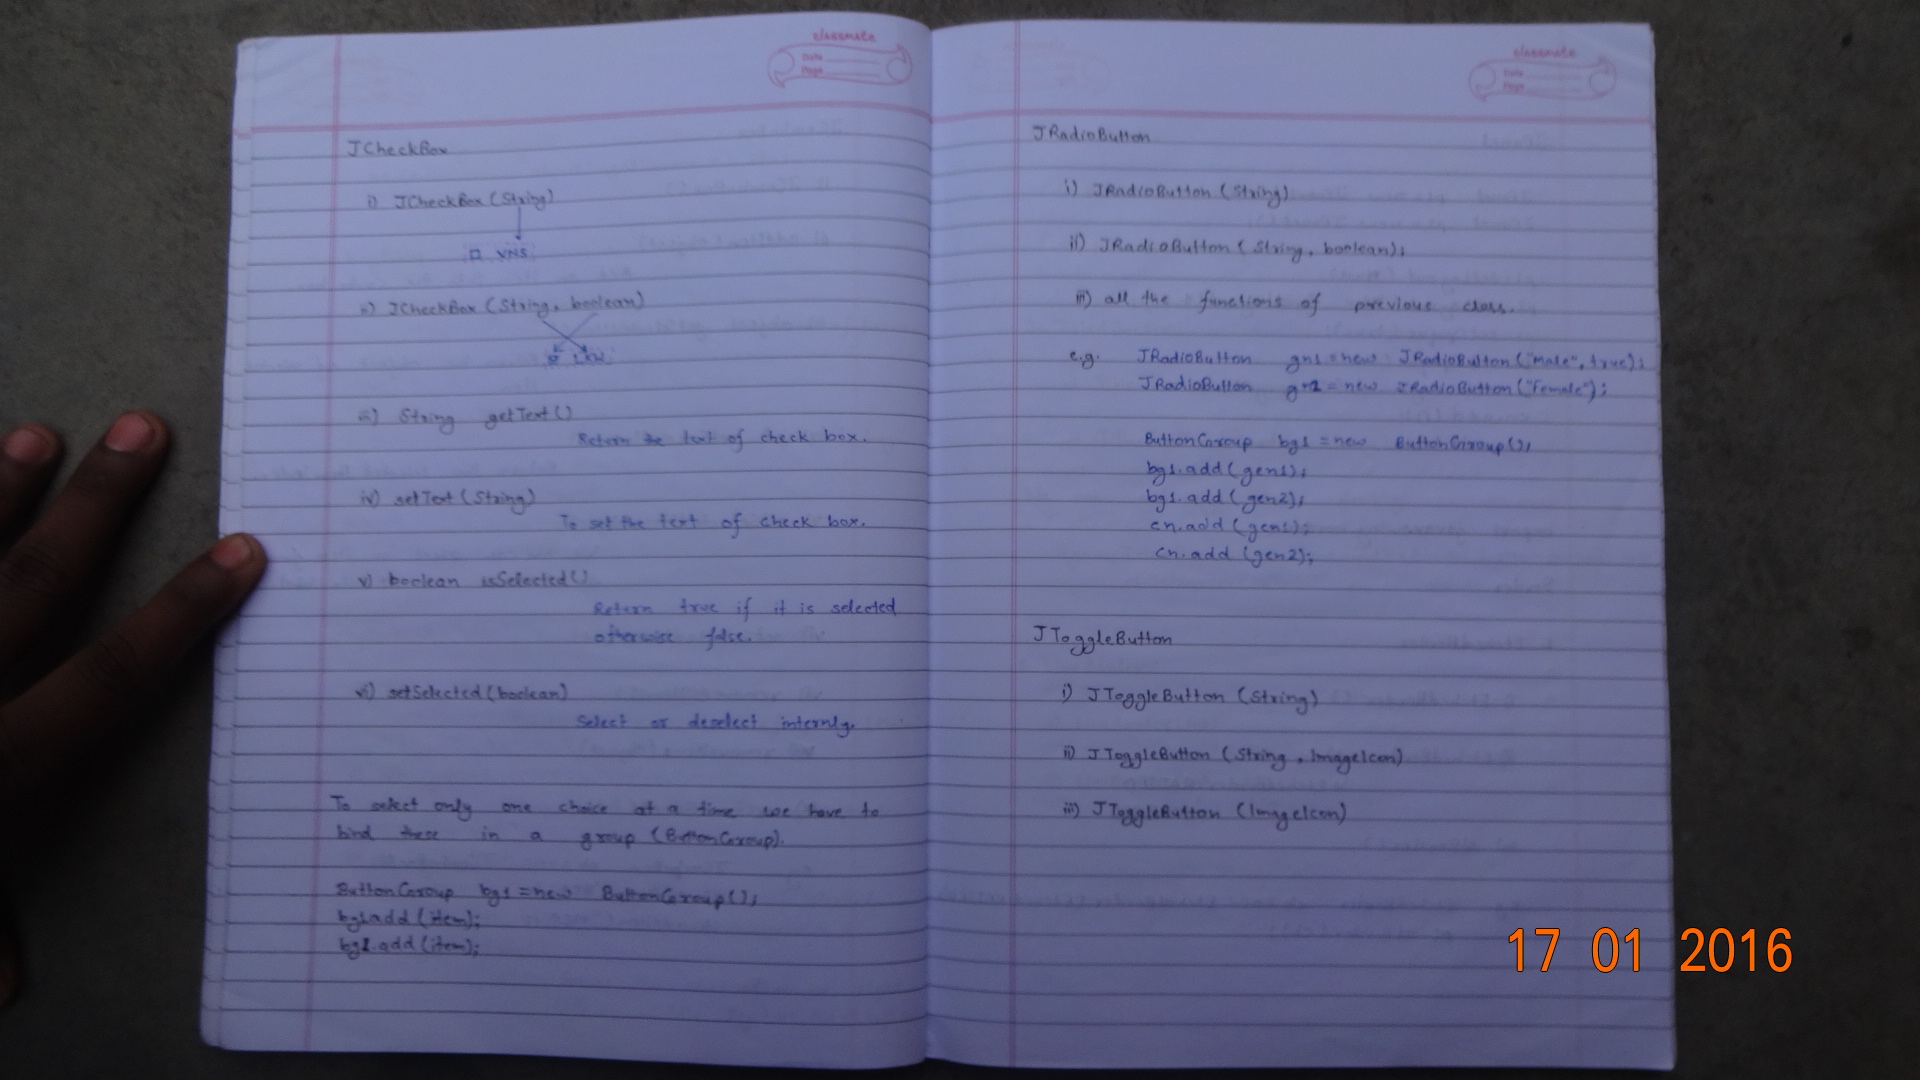 classmate
Date
Page
JCheckBox
i) JCheckBox (String)
VNS
ii) JCheckBox (String, boolean)
LKW
iii) String getText()
Return the text of check box.
iv) setText (String)
To set the text of check box.
v) boolean isSelected()
Return true if it is selected
otherwise false.
vi) setSelected (boolean)
Select or deselect internly.
To select only one choice at a time we have to
bind these in a group (ButtonGroup).
ButtonGroup bg1 = new ButtonGroup();
bg1.add (item);
bg1.add (item);
classmate
Date
Page
JRadioButton
i) JRadioButton (String)
ii) JRadioButton ( String, boolean);
iii) all the functions of previous class.
e.g. JRadioButton gn1 = new JRadioButton ("Male", true);
JRadioButton gn2 = new JRadioButton ("Female");
ButtonGroup bg1 = new ButtonGroup();
bg1.add (gen1);
bg1.add (gen2);
cn.add (gen1);
cn.add (gen2);
JToggleButton
i) JToggleButton (String)
ii) JToggleButton (String, ImageIcon)
iii) JToggleButton (ImageIcon)
17 01 2016